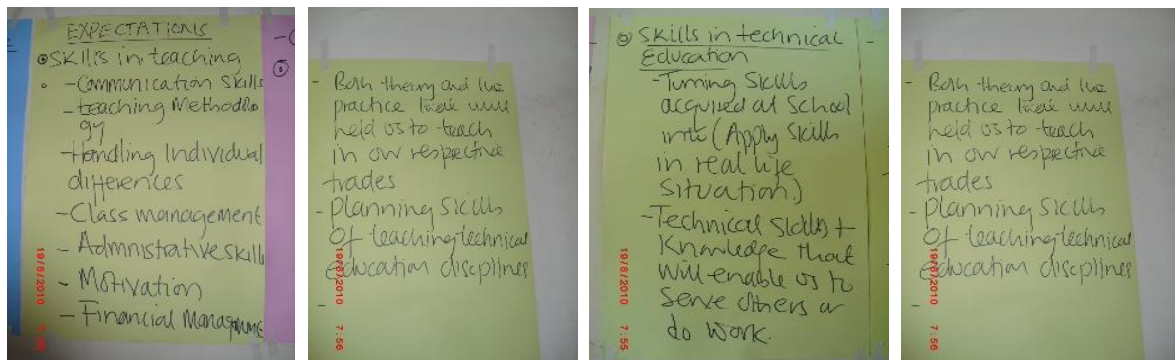 EXPECTATIONS
Skills in teaching
- Communication Skills
- teaching Methodolo
gy
- Handling Individual
differences
- Class management
- Admnistrative skill
- Motivation
- Financial Managme
19/8/2010 7:55
- Both theory and
practice
held us to teach
in our respective
trades
- planning skills
Of teaching technical
education discplines
-
19/8/2010 7:56
Skills in technical
Education
- Turning skills
acquired at School
into (Apply skills
in real life
situation.)
- Technical skills +
Knowledge that
will enable us to
serve others or
do work.
19/8/2010 7:55
- Both theory and
practice
held us to teach
in our respective
trades
- planning skills
Of teaching technical
education discplines
-
19/8/2010 7:56